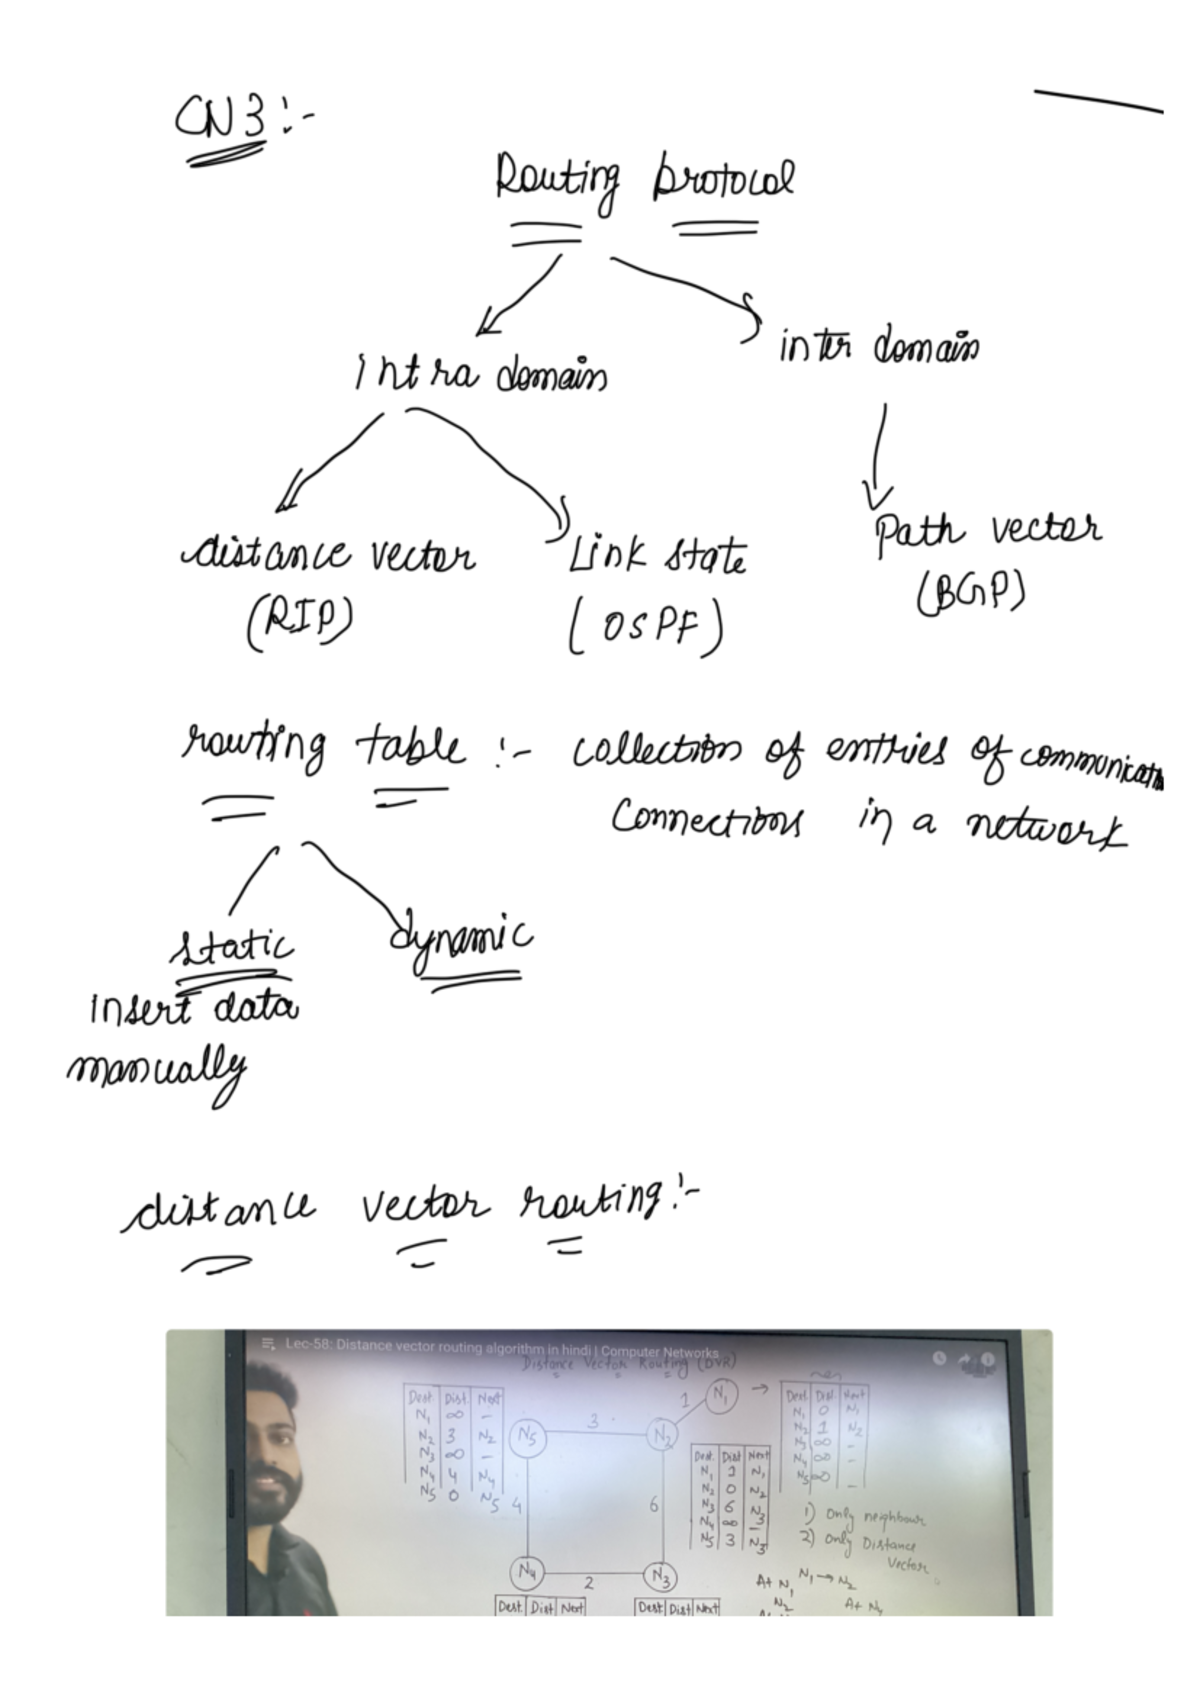 CN3:-
Routing protocol
Intra domain
inter domain
distance vector
(RIP)
Link state
(OSPF)
Path vector
(BGP)
routing table :- collection of entries of
connections in a network
static
dynamic
insert data
manually
distance vector routing:-
Lec-58: Distance vector routing algorithm in hindi | Computer Networks
Distance Vector Routing (DVR)
Dest. Dist. Next
N1 ∞ -
N2 3 N2
N3 ∞ -
N4 4 N4
N5 0 N5
N5
3
N2
1
N1
4
6
N4
2
N3
Dest. Dist. Next
N1 0 N1
N2 1 N2
N3 ∞ -
N4 ∞ -
N5 ∞ -
Dest. Dist Next
N1 1 N1
N2 0 N2
N3 6 N3
N4 ∞ -
N5 3
1) Only neighbour
2) Only Distance
Vector
At N1
N1 → N2
N2
Dest. Dist Next
Dest. Dist Next